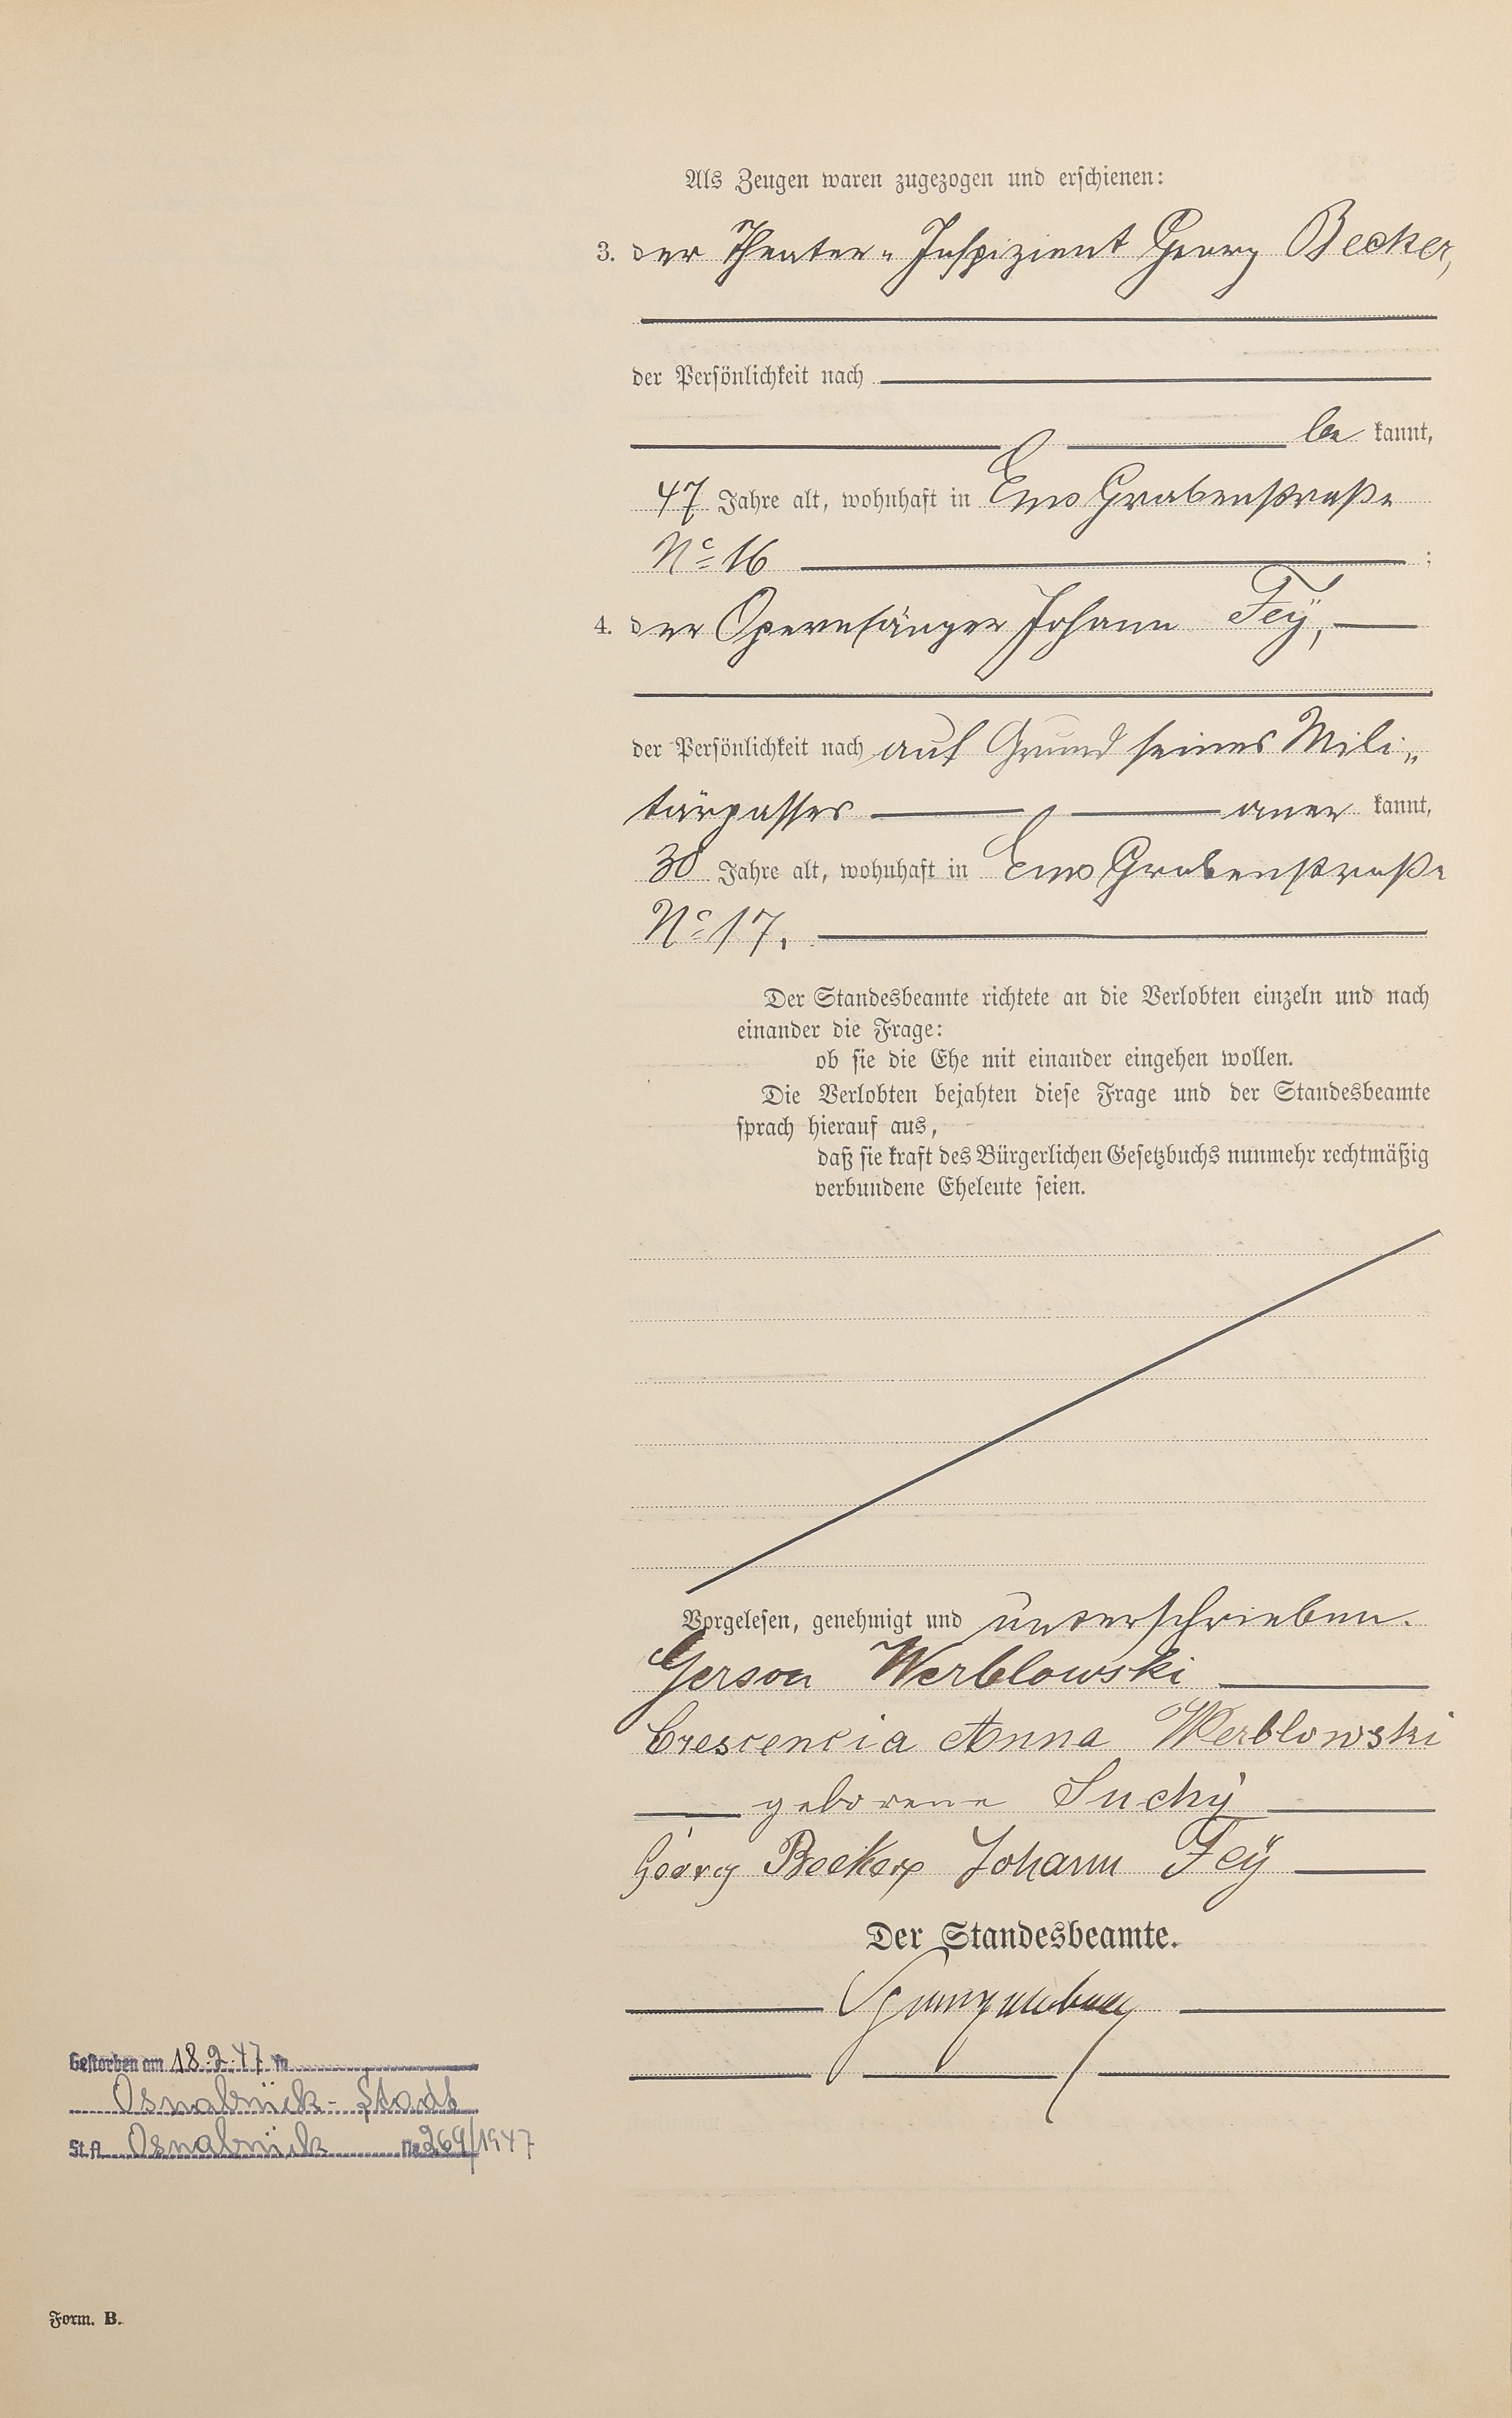 Als Zeugen waren zugezogen und erschienen:
3. der Theater-Inspizient Georg Becker,
der Persönlichkeit nach
be kannt,
47 Jahre alt, wohnhaft in Ems Grabenstraße
No 16 ;
4. der Opernsänger Johann Feÿ,
der Persönlichkeit nach auf Grund seines Mili-
tärpasses aner kannt,
30 Jahre alt, wohnhaft in Ems Grabenstraße
No 17.
Der Standesbeamte richtete an die Verlobten einzeln und nach
einander die Frage:
ob sie die Ehe mit einander eingehen wollen.
Die Verlobten bejahten diese Frage und der Standesbeamte
sprach hierauf aus,
daß sie kraft des Bürgerlichen Gesetzbuchs nunmehr rechtmäßig
verbundene Eheleute seien.
Vorgelesen, genehmigt und unterschrieben.
Gerson Werblowski
Crescencia Anna Werblowski
geborene Suchý
Georg Becker Johann Feÿ
Der Standesbeamte.
Gestorben am 18.2.47 in
Osnabrück-Stadt
St.A. Osnabrück No 269/1947
Form. B.